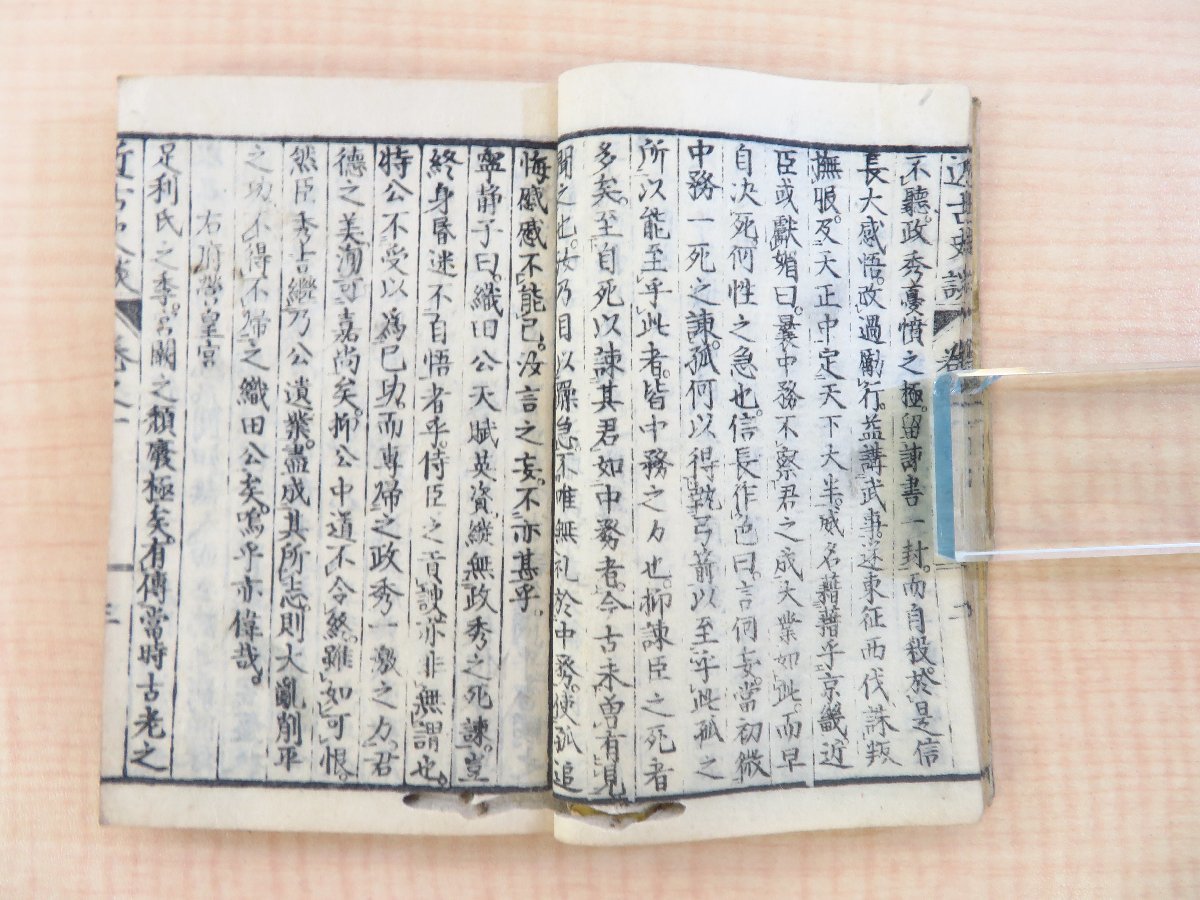 近古史談
不聽。政秀憂憤之極。留諫書一封。而自殺。於是信
長大感悟。改過勵行。益講武事。遂東征西伐誅叛
撫服。及天正中定天下大半。威名藉藉乎京畿近
臣或獻媚曰。曩中務不察君之成大業如此。而早
自決死。何性之急也。信長作色曰。言何妄。當初微
中務一死之諫。孤何以得執弓箭以至乎此。孤之
所以能至乎此者。皆中務之力也。抑諫臣之死者
多矣。至自死以諫其君如中務者。今古未曾有見
聞之也。汝乃目以躁急。不唯無礼於中務。使孤追
悔慼慼不能已。汝言之妄。不亦甚乎。
寧静子曰。織田公天賦英資。縱無政秀之死諫。豈
終身昏迷不自悟者乎。侍臣之貢諛。亦非無謂也。
特公不受以為己功。而專歸之政秀一激之力。君
德之美洵可嘉尚矣。抑公中道不令終。雖如可恨。
然臣秀吉繼乃公遺業。盡成其所志。則大亂削平
之功。不得不歸之織田公矣。嗚乎亦偉哉。
右府營皇宮
足利氏之季。宮闕之頽廢極矣。有傳當時古老之
近古史談 卷之一